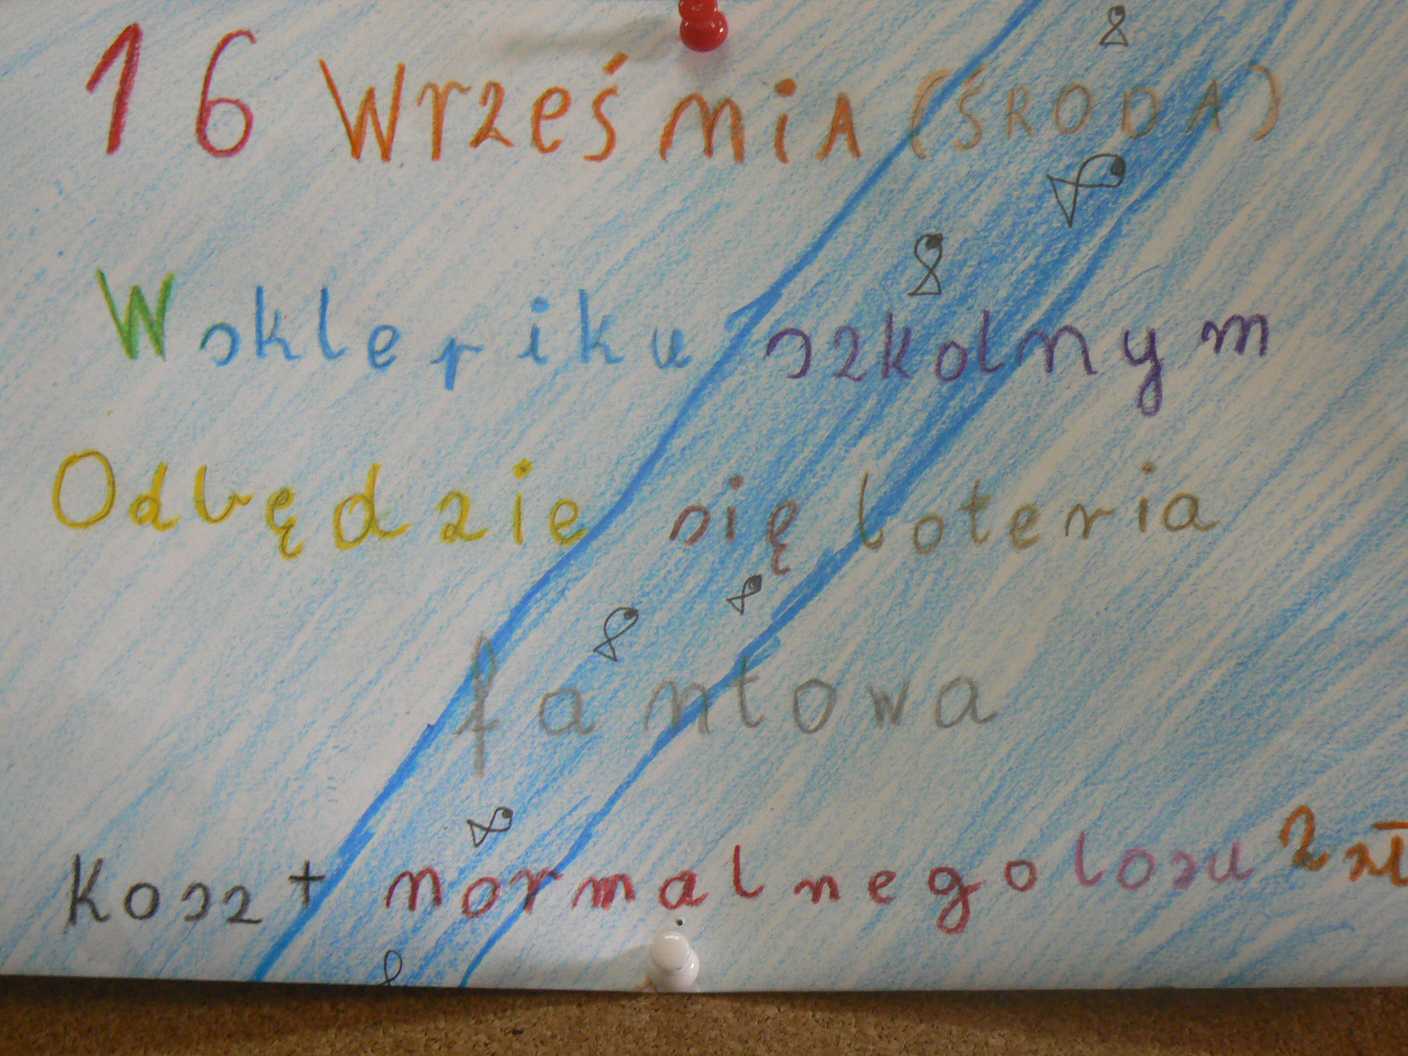 16 Września (ŚRODA)
W sklepiku szkolnym
Odbędzie się loteria
fantowa
Koszt normalnego losu 2 zł